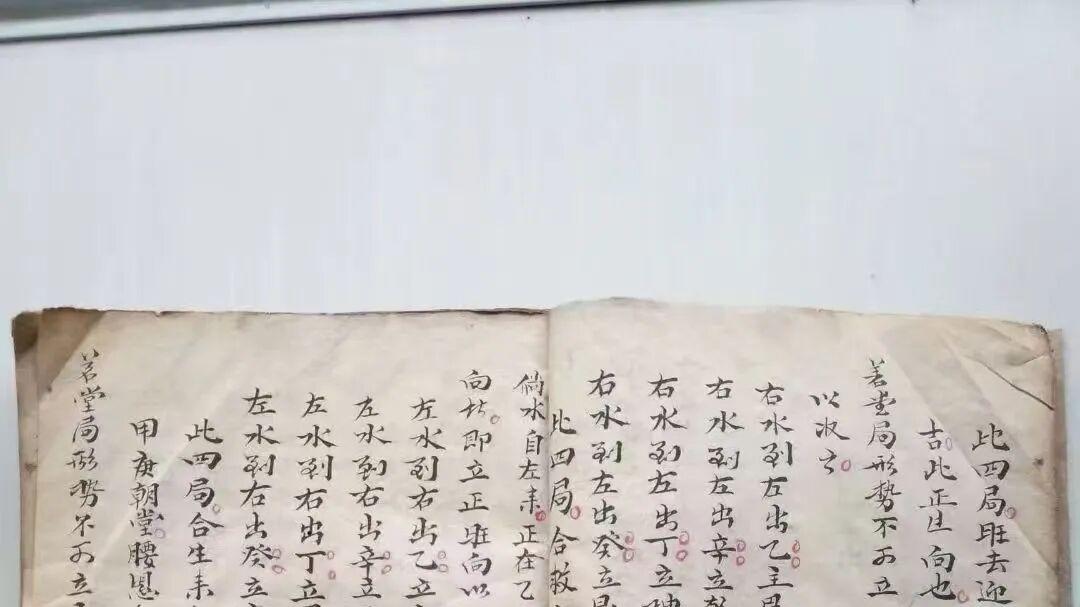 此四局旺去迎
吉此正生向也
若堂局形势不可立
以次之
右水到左出乙立
右水到左出辛立
右水到左出丁立
右水到左出癸立
此四局合救
倘水自左来正在乙
即立正旺向以
左水到右出乙立
左水到右出辛立
左水到右出丁立
左水到右出癸立
此四局合生来
甲庚朝堂腰
若堂局形势不可立